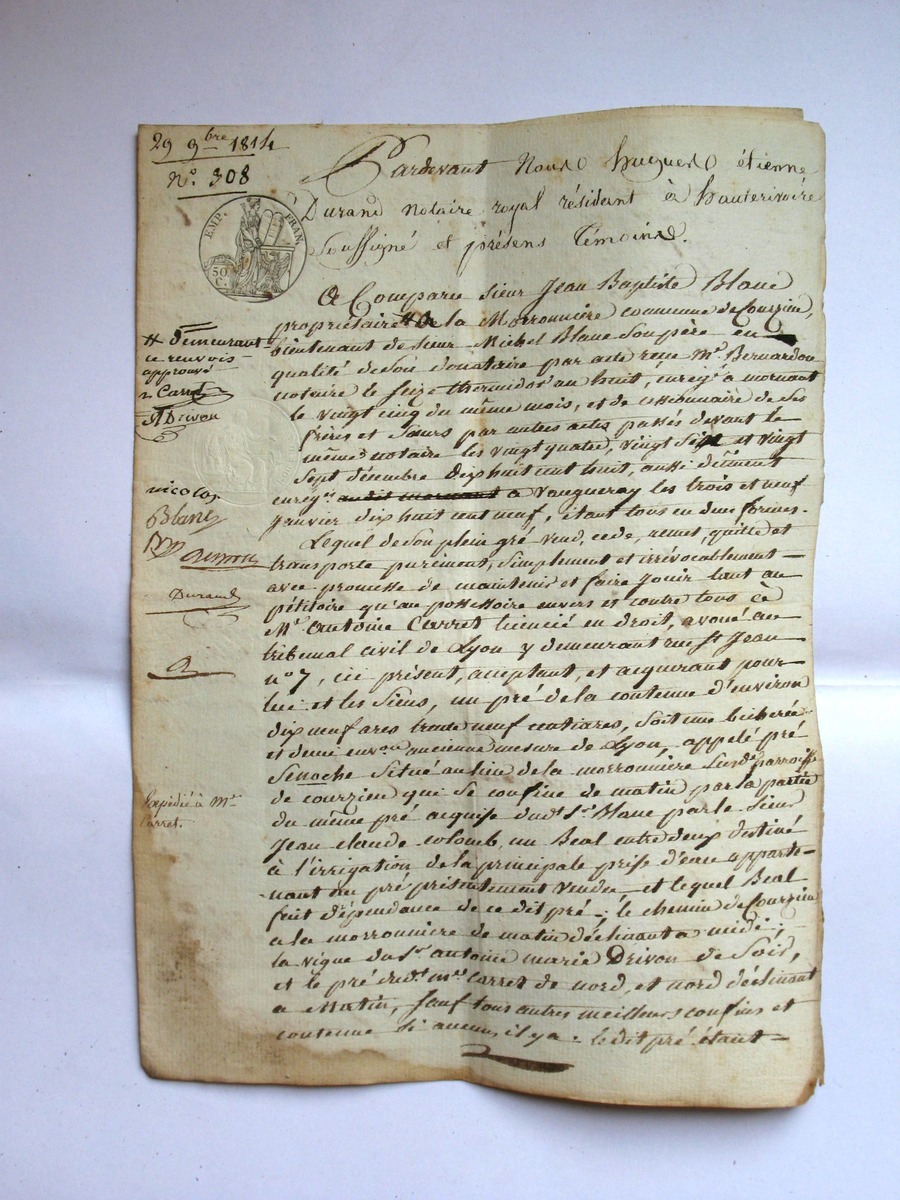 29 9bre 1814
N° 308
EMP. FRAN.
50 C.
Pardevant Nous hugues étienne
Durand Notaire royal résidant à hauterivoire
Soussigné et présens témoins.
A Comparu Sieur Jean Baptiste Blanc
propriétaire # de la Morronniere commune de Courzieu,
bientenant de Sieur Michel Blanc Son père en
qualité de Son donataire par acte reçu Me Bernardon
notaire le Seize thermidor an huit, enregé a mornant
le vingt cinq du même mois, et de cessionnaire de Ses
frères et Sœurs par autres actes passés devant le
même notaire les vingt quatre, vingt Six et vingt
Sept décembre dix huit cent huit, aussi dûment
enregés audit mornant a Vaugneray les trois et neuf
janvier dix huit cent neuf, étant tous en dues formes.
Lequel de Son plein gré vend, cede, remet, quitte et
transporte purement, Simplement et irrévocablement
avec promesse de maintenir et faire jouir tant au
pétitoire qu'au possessoire envers et contre tous à
Me Antoine Carret licencié en droit, avoué au
tribunal civil de Lyon y demeurant rue St Jean
n° 7, ici présent, acceptant, et acquerant pour
lui et les Siens, un pré de la contenue d'environ
dix neuf ares trente neuf centiares, Soit une bicherée
et demi envon ancienne mesure de Lyon, appelé pré
Senoche Situé au lieu de la morronniere Susde parroisse
de courzieu qui se confine de matin par la partie
du même pré acquise dudt Sr Blanc par le Sieur
Jean claude colomb, un Béal entre deux destiné
à l'irrigation de la principale prise d'eau apparte-
nant au pré présentement vendu et lequel Béal
fait dépendance de ce dit pré; le chemin de Courzieu
a la morronniere de matin déclinant a midi;
la vigne du Sr antoine marie Drivon de Soir,
et le pré dudt Me Carret de nord, et nord déclinant
a Matin, Sauf tous autres meilleurs confins et
contenue Si aucuns il y a. le dit pré étant
# demeurant
ce renvois
approuvé
Carret
Drivon
nicolas
Blanc
Durand
Expédié à Me
Carret.